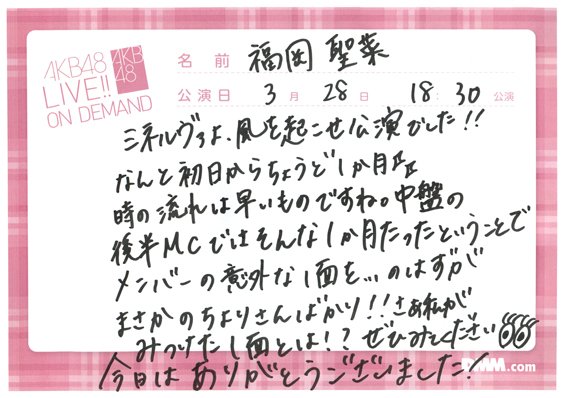 AKB48
LIVE!!
ON DEMAND
AKB
48
名前 福岡 聖菜
公演日 3月 28日 18:30公演
ミネルヴァよ、風を起こせ公演でした!!
なんと初日からちょうど1か月!!
時の流れは早いものですね。中盤の
後半MCではそんな1か月たったということで
メンバーの意外な1面を...のはずが
まさかのちよりさんばかり!!さぁ私が
みつけた1面とは!?ぜひみてください
今日はありがとうございました!
DMM.com